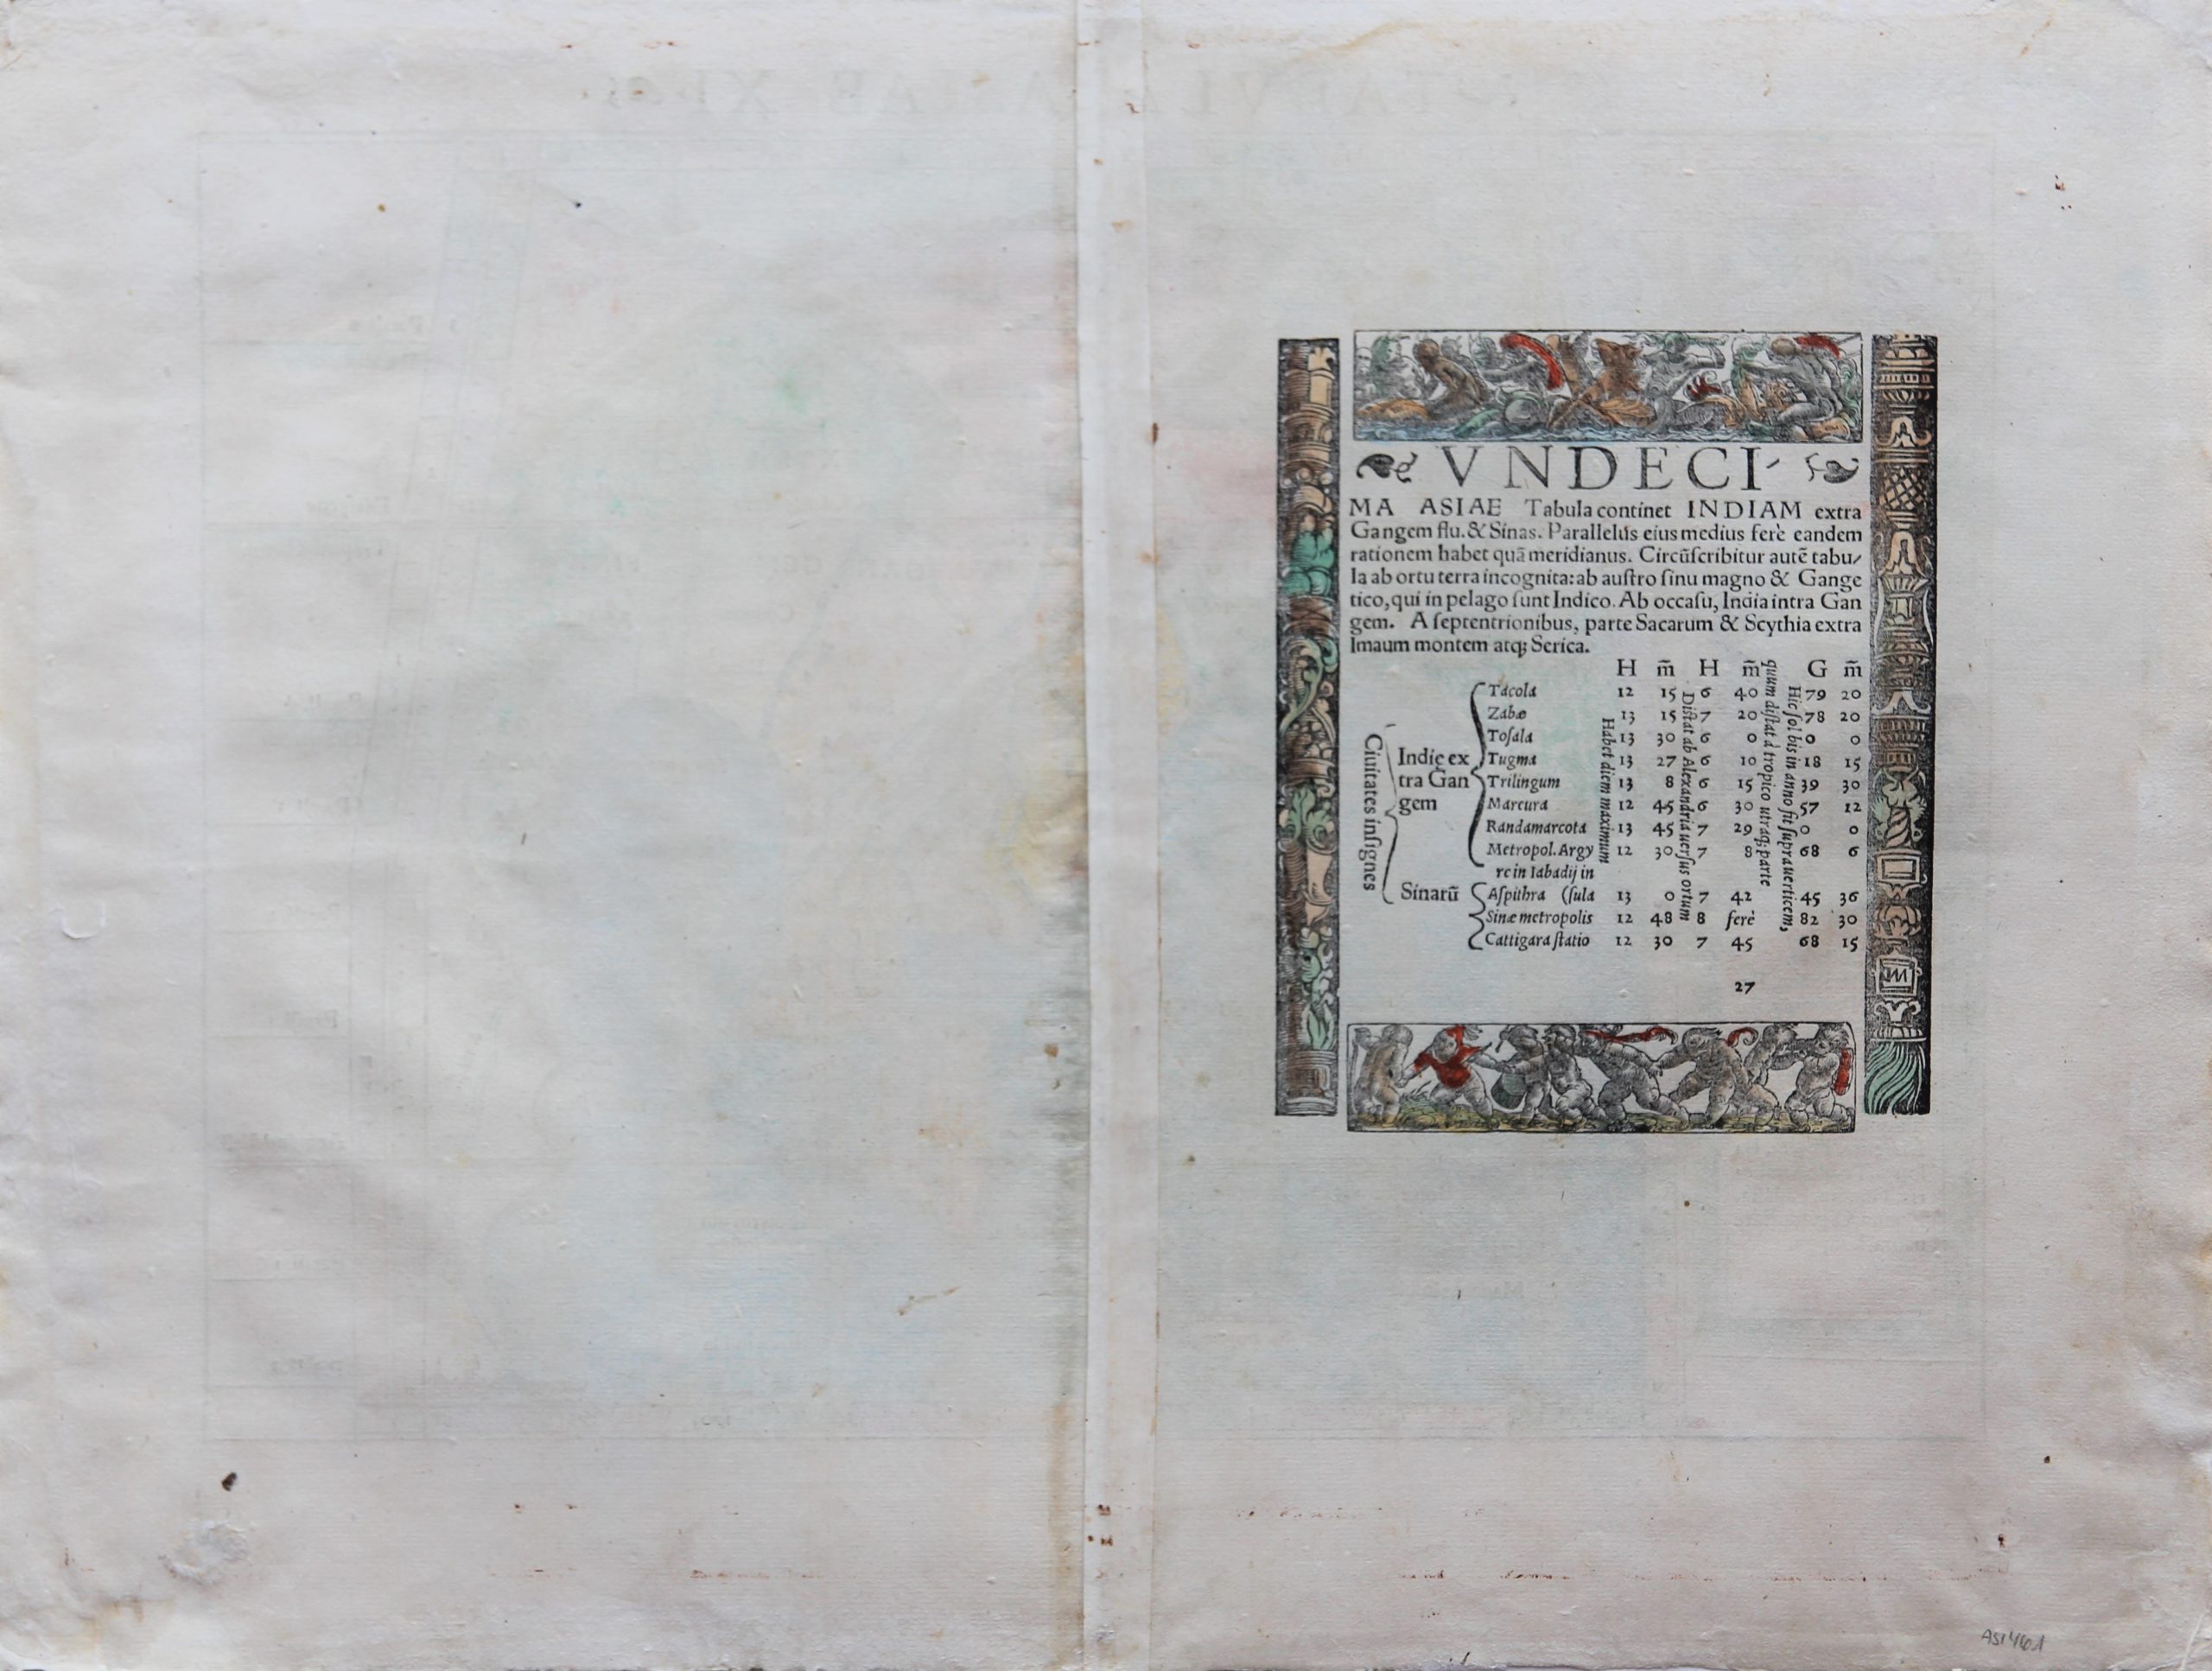 VNDECI-
MA ASIAE Tabula continet INDIAM extra
Gangem flu. & Sinas. Parallelus eius medius ferè eandem
rationem habet quã meridianus. Circũſcribitur autẽ tabu-
la ab ortu terra incognita: ab auſtro ſinu magno & Gange
tico, qui in pelago ſunt Indico. Ab occaſu, India intra Gan
gem. A ſeptentrionibus, parte Sacarum & Scythia extra
Imaum montem atq; Serica.
H m̃ H m̃ G m̃
Ciuitates inſignes
Indię ex
tra Gan
gem
Habet diem maximum
Diſtat ab Alexandria uerſus ortum
quum diſtat à tropico utraq; parte
Hic ſol bis in anno fit ſupra uerticem,
Tacola 12 15 6 40 79 20
Zabæ 13 15 7 20 78 20
Toſala 13 30 6 0 0 0
Tugma 13 27 6 10 18 15
Trilingum 13 8 6 15 39 30
Marcura 12 45 6 30 57 12
Randamarcota 13 45 7 29 0 0
Metropol. Argy 12 30 7 8 68 6
re in Iabadij in
Sinarũ Aſpithra (ſula 13 0 7 42 45 36
Sinæ metropolis 12 48 8 ferè 82 30
Cattigara ſtatio 12 30 7 45 68 15
27